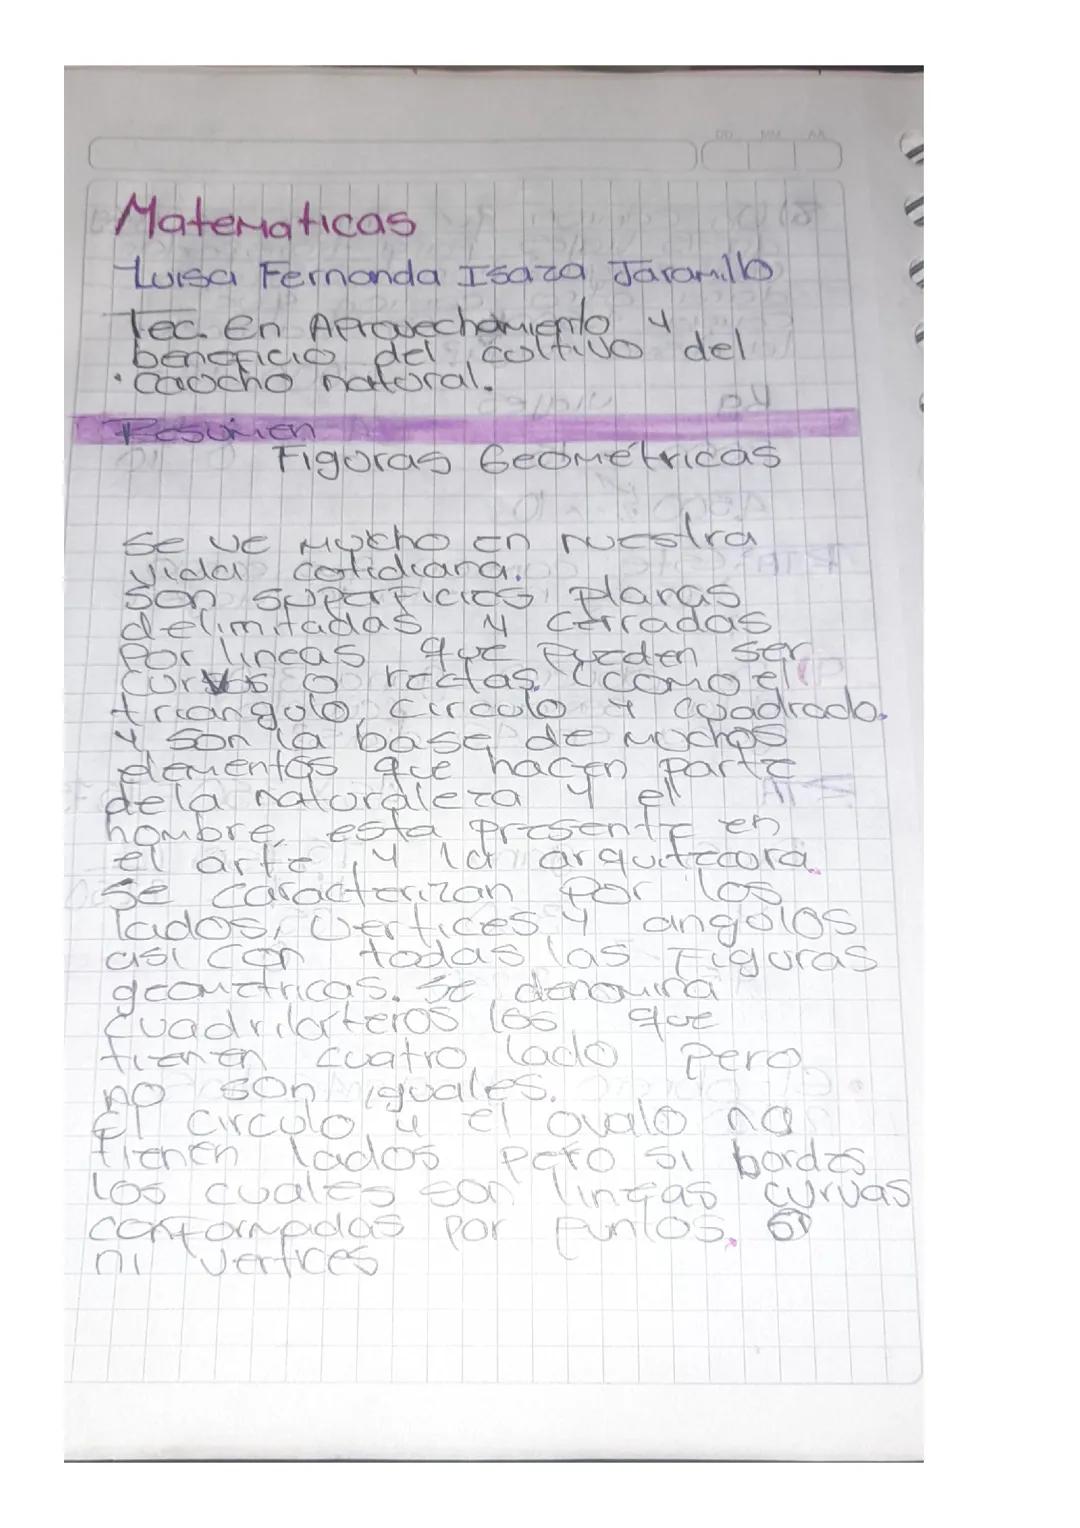 DD MM AA
Matematicas
Luisa Fernanda Isaza Jaramillo
Tec. en Aprovechamiento y
beneficio del cultivo del
caucho natural.
Resumen
Figuras Geométricas
se ve mucho en nuestra
vida cotidiana.
son superficies planas
delimitadas y cerradas
por lineas que pueden ser
curvas o rectas. como el
triangulo, circulo y cuadrado.
y son la base de muchos
elementos que hacen parte
dela naturaleza y el
hombre, esta presente en
el arte, y la arquitecura.
se caracterizan por los
lados, vertices y angulos
asi con todas las figuras
geometricas. se denomina
cuadrilarteros los que
tienen cuatro lado pero
no son iguales.
El circulo y el ovalo no
tienen lados pero si bordes
los cuales son lineas curvas
conformadas por puntos.
ni vertices